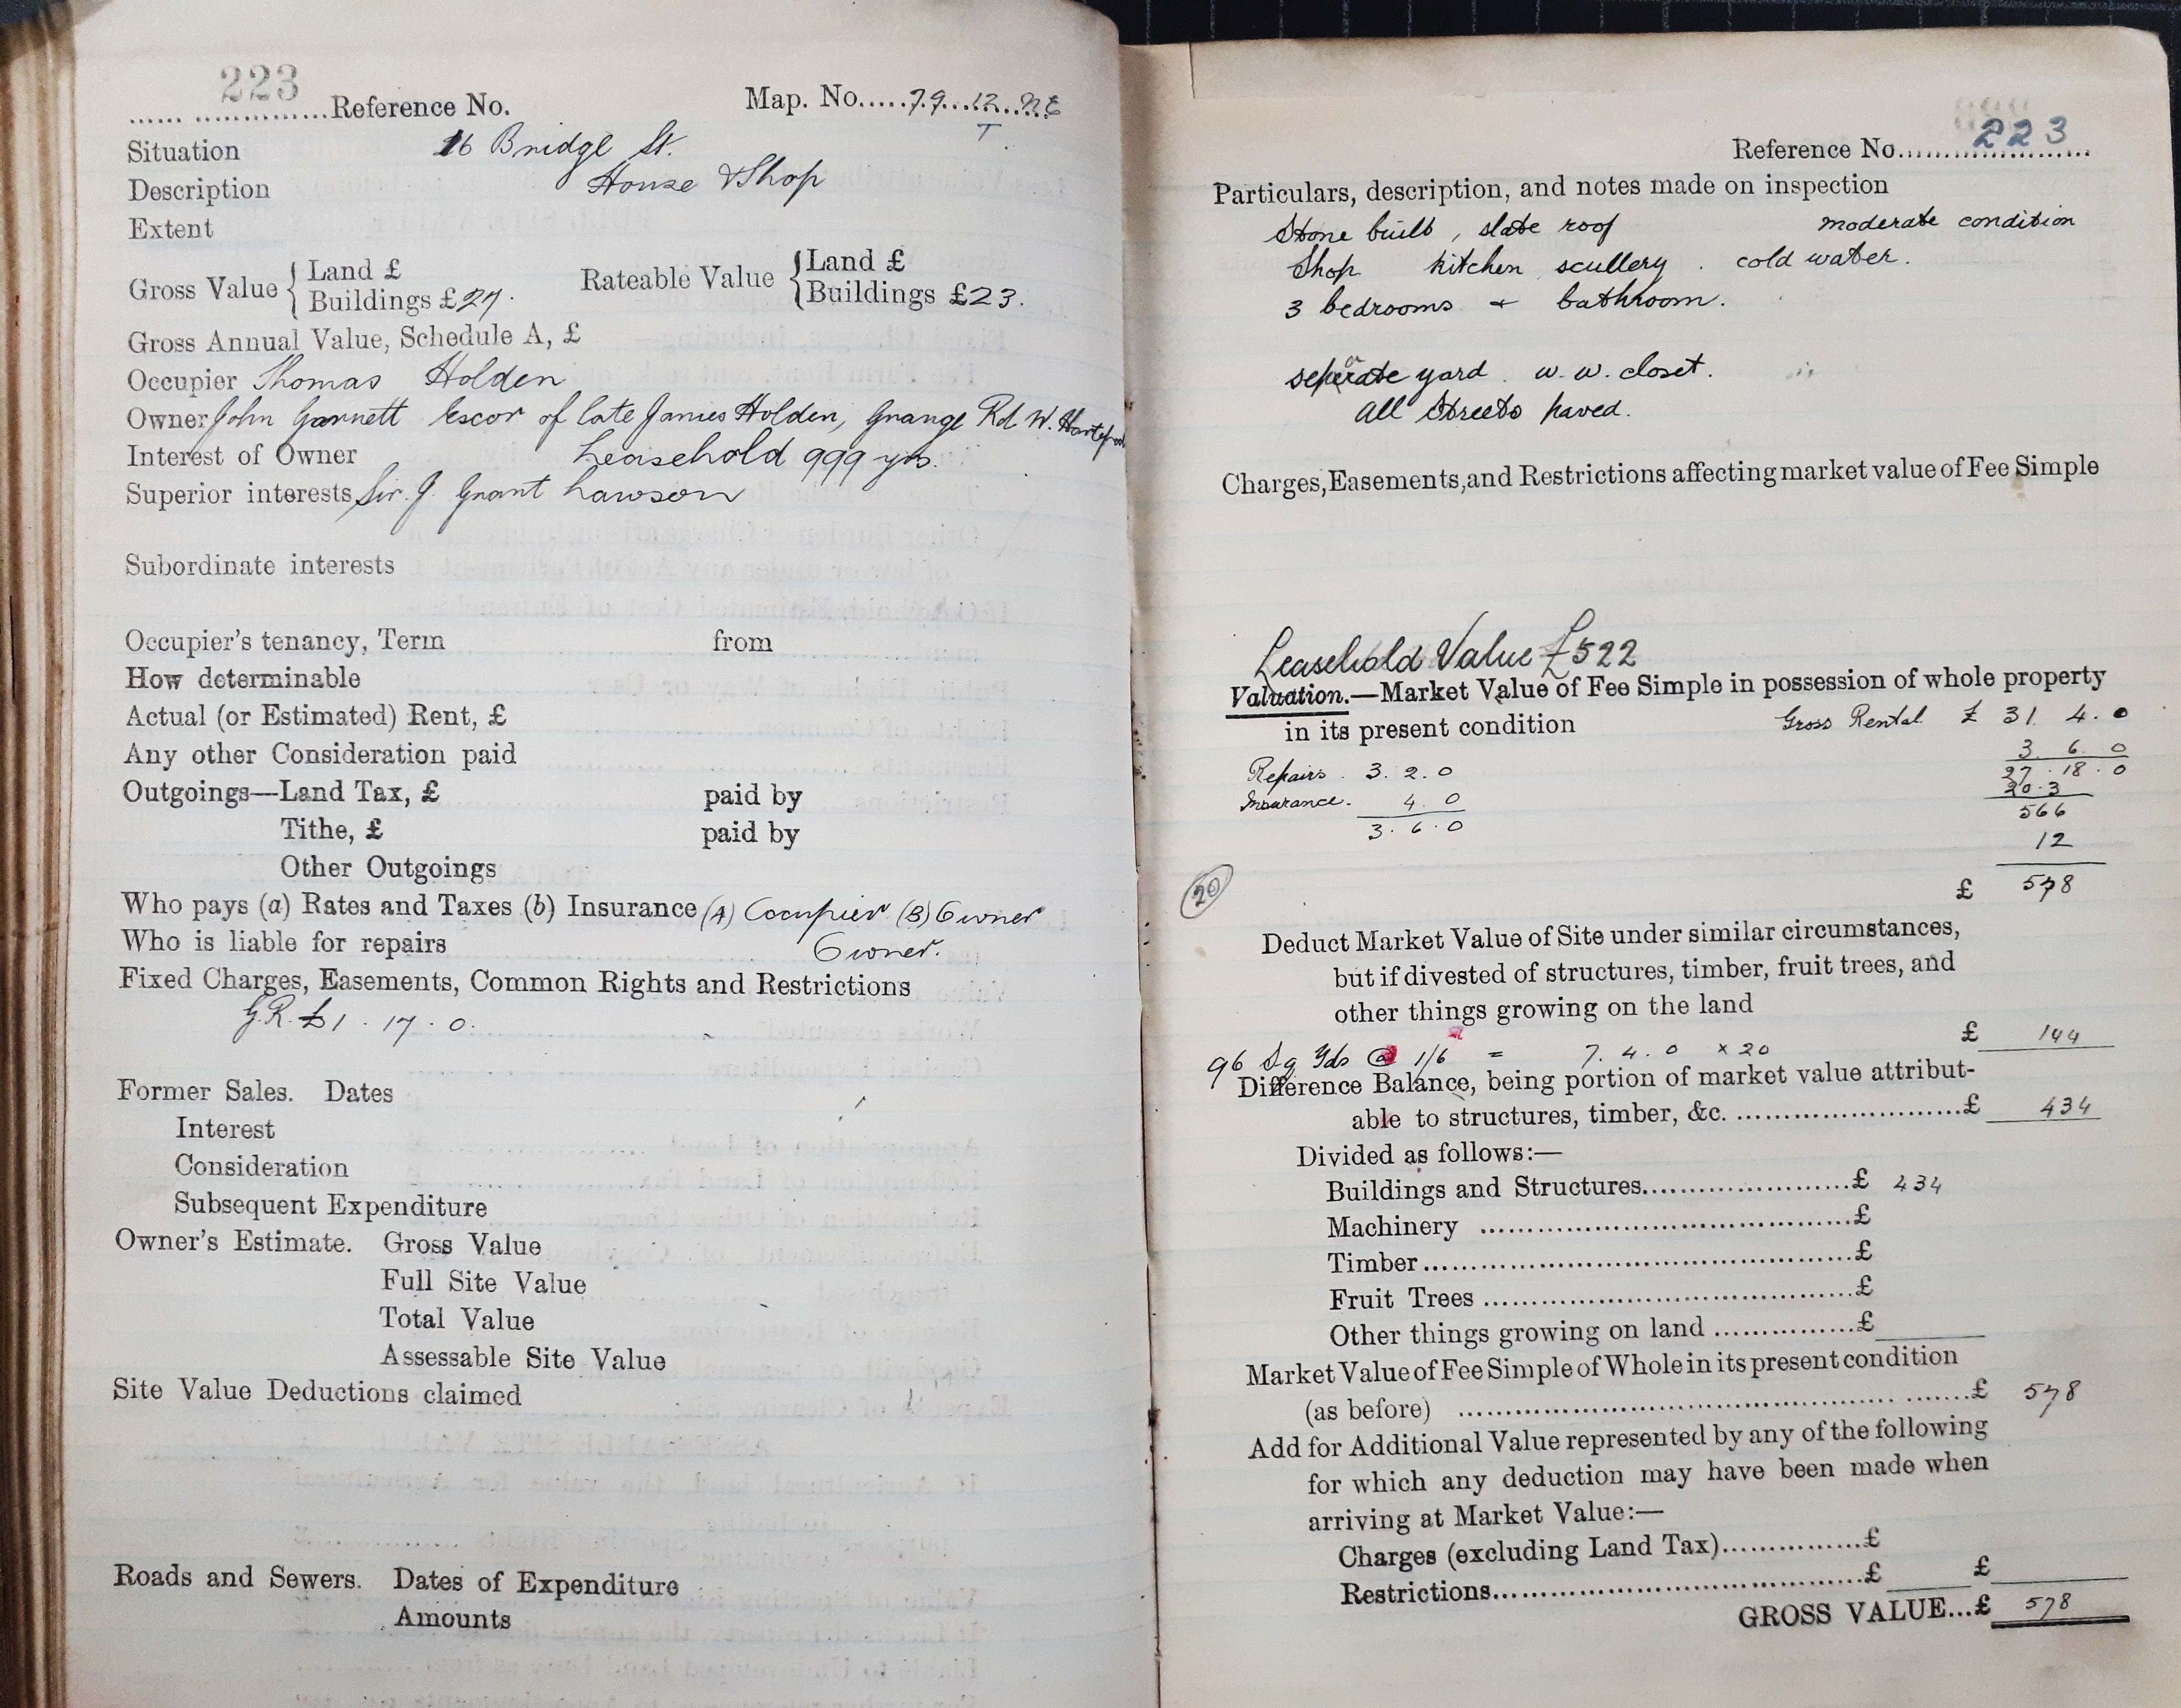 223
...... ..............Reference No.
Map. No.....79...12...N.E
T
Situation 16 Bridge St.
Description House & Shop
Extent
Gross Value { Land £
Buildings £27.
Rateable Value { Land £
Buildings £23.
Gross Annual Value, Schedule A, £
Occupier Thomas Holden
Owner John Garnett Excor of late James Holden, Grange Rd W. Hartlepool
Interest of Owner Leasehold 999 yrs.
Superior interests Sir. J. Grant Lawson
Subordinate interests
Occupier's tenancy, Term from
How determinable
Actual (or Estimated) Rent, £
Any other Consideration paid
Outgoings—Land Tax, £ paid by
Tithe, £ paid by
Other Outgoings
Who pays (a) Rates and Taxes (b) Insurance (A) Occupier (B) Owner
Who is liable for repairs Owner.
Fixed Charges, Easements, Common Rights and Restrictions
G.R. £1 . 17 . 0.
Former Sales. Dates
Interest
Consideration
Subsequent Expenditure
Owner's Estimate. Gross Value
Full Site Value
Total Value
Assessable Site Value
Site Value Deductions claimed
Roads and Sewers. Dates of Expenditure
Amounts
Reference No. 223
Particulars, description, and notes made on inspection
Stone built, slate roof moderate condition
Shop kitchen scullery . cold water.
3 bedrooms + bathroom.
separate yard . w. w. closet.
all Streets paved.
Charges, Easements, and Restrictions affecting market value of Fee Simple
Leasehold Value £522
Valuation.—Market Value of Fee Simple in possession of whole property
in its present condition Gross Rental £ 31 4. 0
3. 6. 0
Repairs . 3. 2. 0 27 . 18 . 0
Insurance. 4. 0 20.3
3. 6. 0 566
12
(20)
£ 578
Deduct Market Value of Site under similar circumstances,
but if divested of structures, timber, fruit trees, and
other things growing on the land
£ 144
96 Sq Yds @ 1/6 = 7. 4. 0 x 20
Difference Balance, being portion of market value attribut-
able to structures, timber, &c. ........................£ 434
Divided as follows:—
Buildings and Structures......................£ 434
Machinery ........................................£
Timber..............................................£
Fruit Trees .......................................£
Other things growing on land ...............£
Market Value of Fee Simple of Whole in its present condition
(as before) ..............................................£ 578
Add for Additional Value represented by any of the following
for which any deduction may have been made when
arriving at Market Value:—
Charges (excluding Land Tax)...............£
Restrictions........................................£ £
GROSS VALUE...£ 578